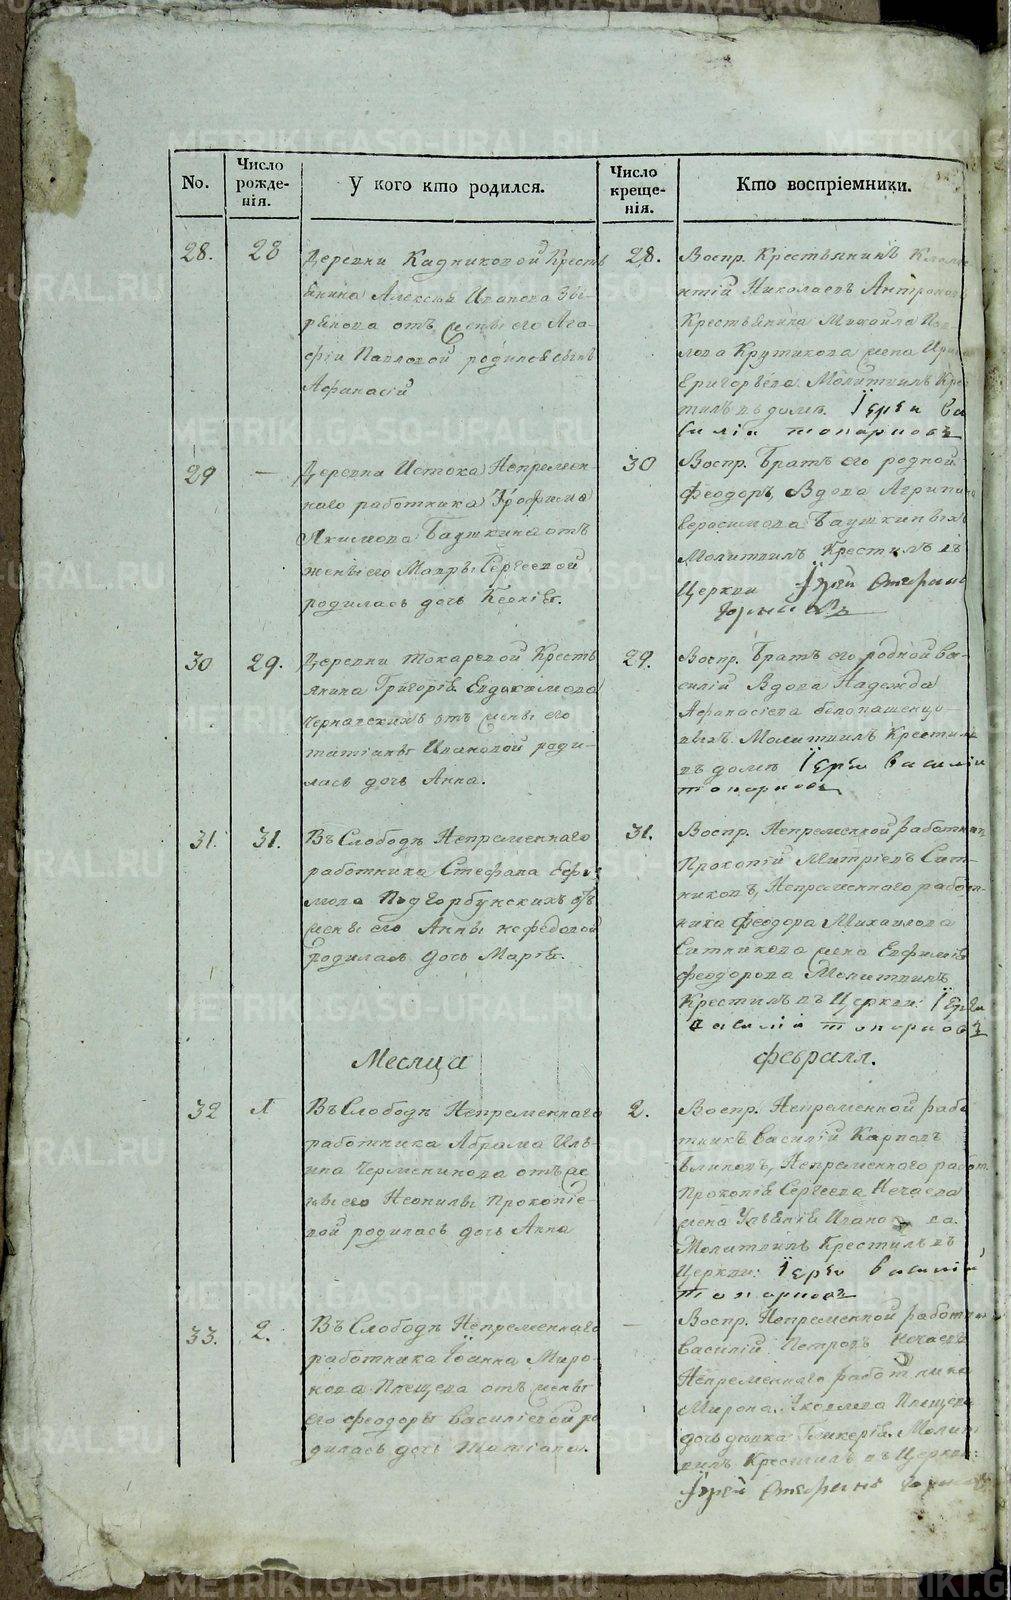 No.
Число рожде-нія.
У кого кто родился.
Число креще-нія.
Кто воспріемники.
28.
28
Деревни Кадниковой Кресть
янина Алексѣя Иванова Звѣ-
рѣкова отъ жены его Ага-
фіи Павловой родился сынъ
Афанасій
28.
Воспр. Крестьянинъ
Николаевъ
Крестьянина Михайла Пав
лова Крутикова жена Ирина
Григорьева. Молитвилъ Крес
тилъ въ домѣ. Іерей Ва
силій топорковъ
29
—
Деревни Истока Непремен-
наго работника Трофима
Якимова Баушкина отъ
жены его Мавры Сергеевой
родилась дочь Ксенія.
30
Воспр. Братъ его родной
Феодоръ, Вдова Агрипина
Герасимова Баушкиныхъ
Молитвилъ Крестилъ въ
Церкви Іерей
30
29.
Деревни Токаревой Кресть
янина Григорія Евдокимова
Чернавскихъ отъ жены его
татіаны Ивановой роди-
лась дочь Анна.
29.
Воспр. Братъ его родной Ва-
силій Вдова Надежда
Афанасіева белопашенцо-
выхъ. Молитвилъ Крестилъ
въ домѣ Іерей василій
топорковъ
31.
31.
Въ Слободѣ Непременнаго
работника Стефана Ефи
мова Подгорбунскихъ отъ
жены его Анны нефедовой
родилась дочь Марія.
31.
Воспр. Непременной работник
Прокопій Митріевъ Сит-
никовъ, Непременнаго работ-
ника Феодора Михаилова
Ситникова жена Евфимія
Феодорова Молитвилъ
Крестилъ въ Церкви: Іерей
василій топорковъ
Месяца
февраля.
32
1
Въ Слободѣ Непременнаго
работника Абрама Иль-
ина Черменинова отъ же
ны его Неонилы Прокопіе-
вой родилась дочь Анна
2.
Воспр. Непременной рабо
тникъ Василій Карповъ
Блиновъ, Непременнаго работ
Прокопія Сергеева Нечаева
жена Ульянія Иванова.
Молитвилъ Крестилъ въ
Церкви: Іерей василій
топорковъ
33.
2.
Въ Слободѣ Непременнаго
работника Іоанна Миро-
нова Плещева отъ жены
его Феодоры Василіевой ро
дилась дочь Татіана.
—
Воспр. Непременной работник
Василій Петровъ Нечаевъ
Непременнаго работника
Мирона Яковлева Плещева
дочь дѣвка Гликерія. Молит
вилъ Крестилъ въ Церкви:
Іерей
METRIKI.GASO-URAL.RU